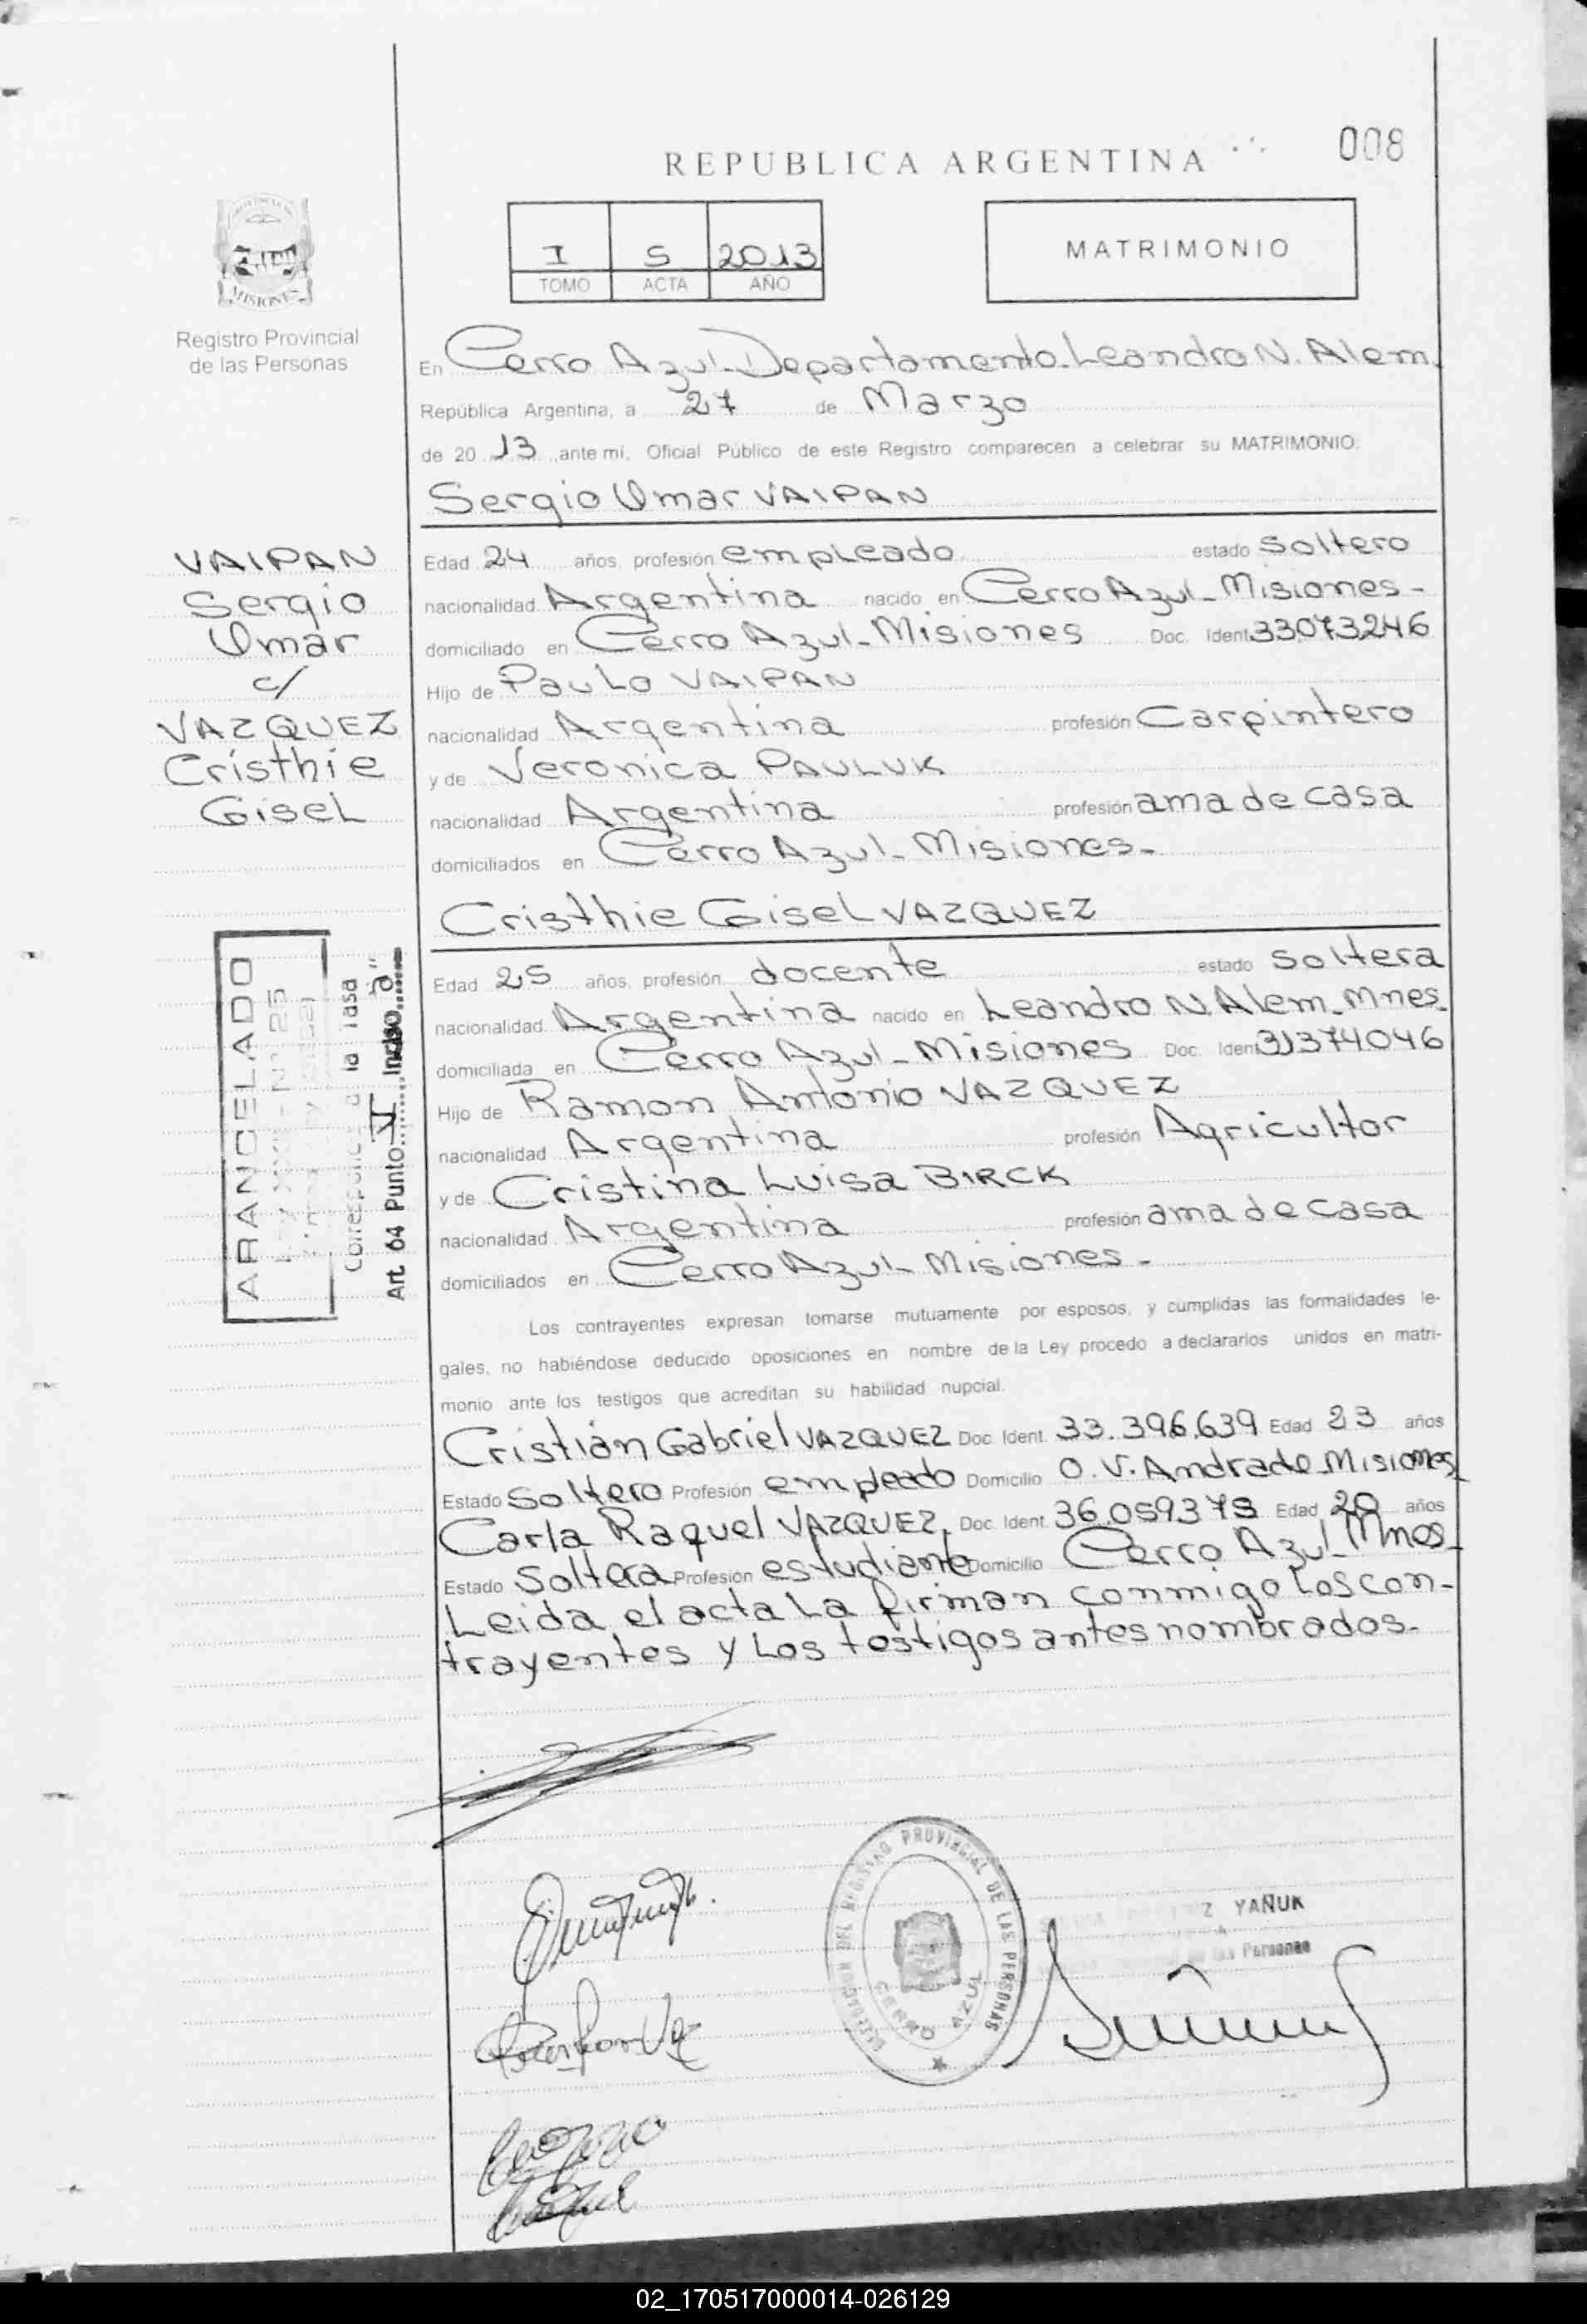 008
REPUBLICA ARGENTINA
I S 2013
TOMO ACTA AÑO
MATRIMONIO
MISIONES
Registro Provincial
de las Personas
En Cerro Azul-Departamento-Leandro N. Alem.
República Argentina, a 27 de Marzo
de 20 13 ante mi, Oficial Público de este Registro comparecen a celebrar su MATRIMONIO.
Sergio Omar VAIPAN
VAIPAN
Sergio
Omar
c/
VAZQUEZ
Cristhie
Gisel
Edad 24 años, profesión empleado estado Soltero
nacionalidad Argentina nacido en Cerro Azul-Misiones-
domiciliado en Cerro Azul-Misiones Doc. Ident 33.073.246
Hijo de Paulo VAIPAN
nacionalidad Argentina profesión Carpintero
y de Veronica PAULUK
nacionalidad Argentina profesión ama de casa
domiciliados en Cerro Azul-Misiones-
Cristhie Gisel VAZQUEZ
Edad 25 años, profesión docente estado Soltera
nacionalidad Argentina nacido en Leandro N Alem-Mnes.
domiciliada en Cerro Azul-Misiones Doc. Ident 31374046
Hijo de Ramon Antonio VAZQUEZ
nacionalidad Argentina profesión Agricultor
y de Cristina Luisa BIRCK
nacionalidad Argentina profesión ama de casa
domiciliados en Cerro Azul-Misiones-
ARANCELADO
a la Tasa
Art. 64 Punto V Inciso "a"
Los contrayentes expresan tomarse mutuamente por esposos, y cumplidas las formalidades le-
gales, no habiéndose deducido oposiciones en nombre de la Ley procedo a declararlos unidos en matri-
monio ante los testigos que acreditan su habilidad nupcial.
Cristián Gabriel VAZQUEZ Doc. Ident. 33.396.639 Edad 23 años
Estado Soltero Profesión empleado Domicilio O.V. Andrade-Misiones
Carla Raquel VAZQUEZ. Doc. Ident. Edad 20 años
Estado Soltera Profesión estudiante Domicilio Cerro Azul-Mnes-
Leida el acta la firman conmigo los con-
trayentes y los testigos antes nombrados-
DEL REGISTRO PROVINCIAL DE LAS PERSONAS
CERRO AZUL
YAÑUK
de las Personas
02_170517000014-026129